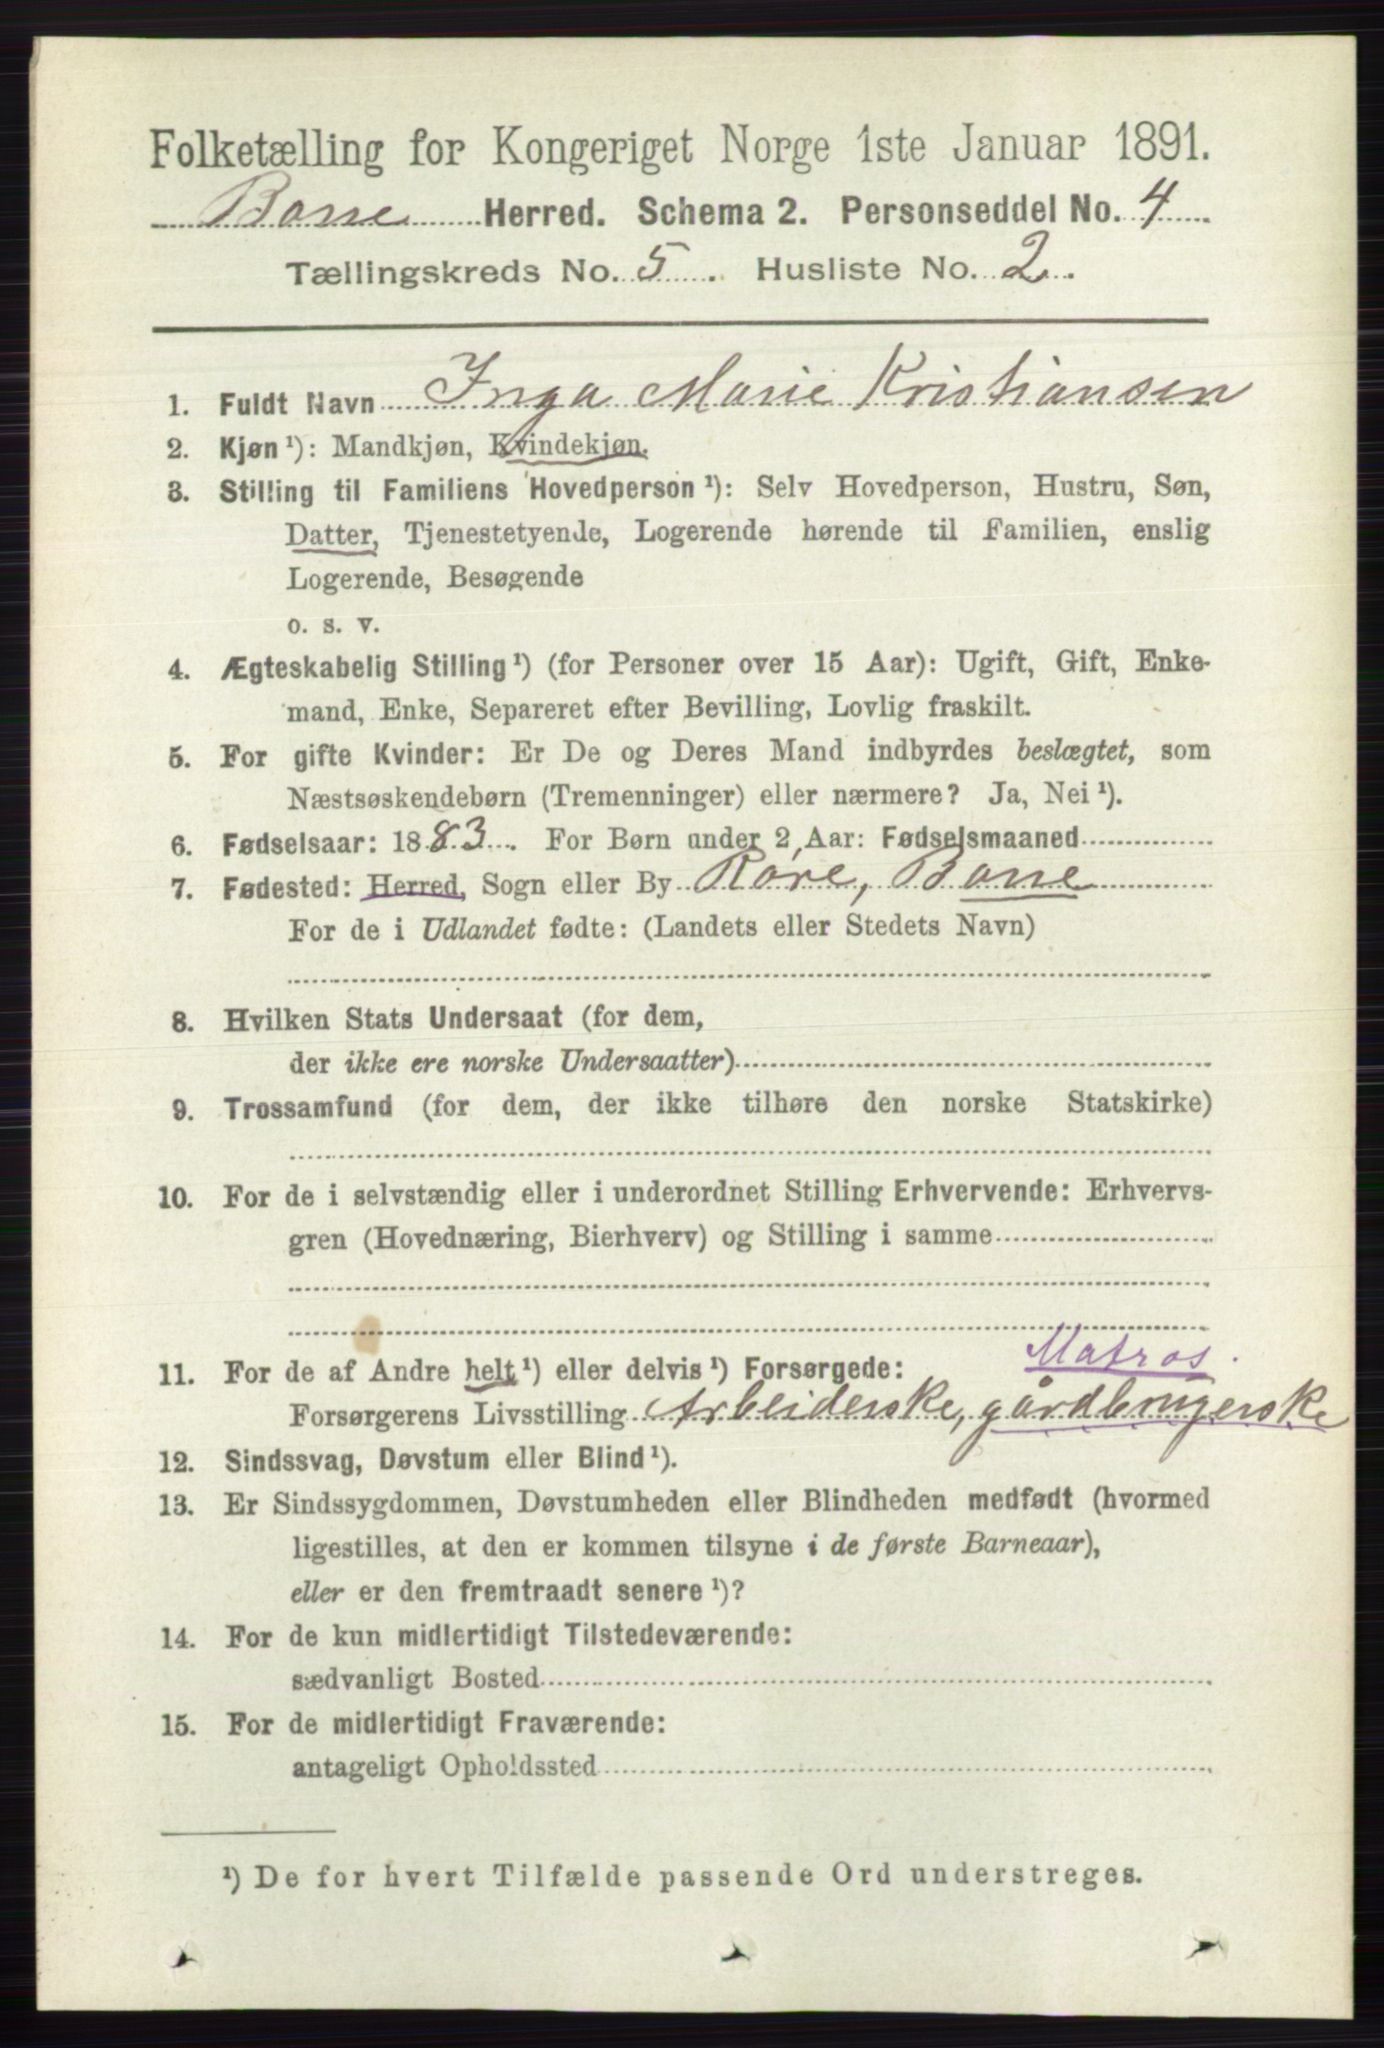 Folketælling for Kongeriget Norge 1ste Januar 1891.
Borre Herred. Schema 2. Personseddel No. 4
Tællingskreds No. 5. Husliste No. 2.
1. Fuldt Navn Inga Marie Kristiansen
2. Kjøn ¹): Mandkjøn, Kvindekjøn.
3. Stilling til Familiens Hovedperson ¹): Selv Hovedperson, Hustru, Søn,
Datter, Tjenestetyende, Logerende hørende til Familien, enslig
Logerende, Besøgende
o. s. v.
4. Ægteskabelig Stilling ¹) (for Personer over 15 Aar): Ugift, Gift, Enke-
mand, Enke, Separeret efter Bevilling, Lovlig fraskilt.
5. For gifte Kvinder: Er De og Deres Mand indbyrdes beslægtet, som
Næstsøskendebørn (Tremenninger) eller nærmere? Ja, Nei ¹).
6. Fødselsaar: 1883. For Børn under 2 Aar: Fødselsmaaned
7. Fødested: Herred, Sogn eller By Røre, Borre
For de i Udlandet fødte: (Landets eller Stedets Navn)
8. Hvilken Stats Undersaat (for dem,
der ikke ere norske Undersaatter)
9. Trossamfund (for dem, der ikke tilhøre den norske Statskirke)
10. For de i selvstændig eller i underordnet Stilling Erhvervende: Erhvervs-
gren (Hovednæring, Bierhverv) og Stilling i samme
Matros.
11. For de af Andre helt ¹) eller delvis ¹) Forsørgede:
Forsørgerens Livsstilling Arbeiderske, gårdbrugerske
12. Sindssvag, Døvstum eller Blind ¹).
13. Er Sindssygdommen, Døvstumheden eller Blindheden medfødt (hvormed
ligestilles, at den er kommen tilsyne i de første Barneaar),
eller er den fremtraadt senere ¹)?
14. For de kun midlertidigt Tilstedeværende:
sædvanligt Bosted
15. For de midlertidigt Fraværende:
antageligt Opholdssted
¹) De for hvert Tilfælde passende Ord understreges.